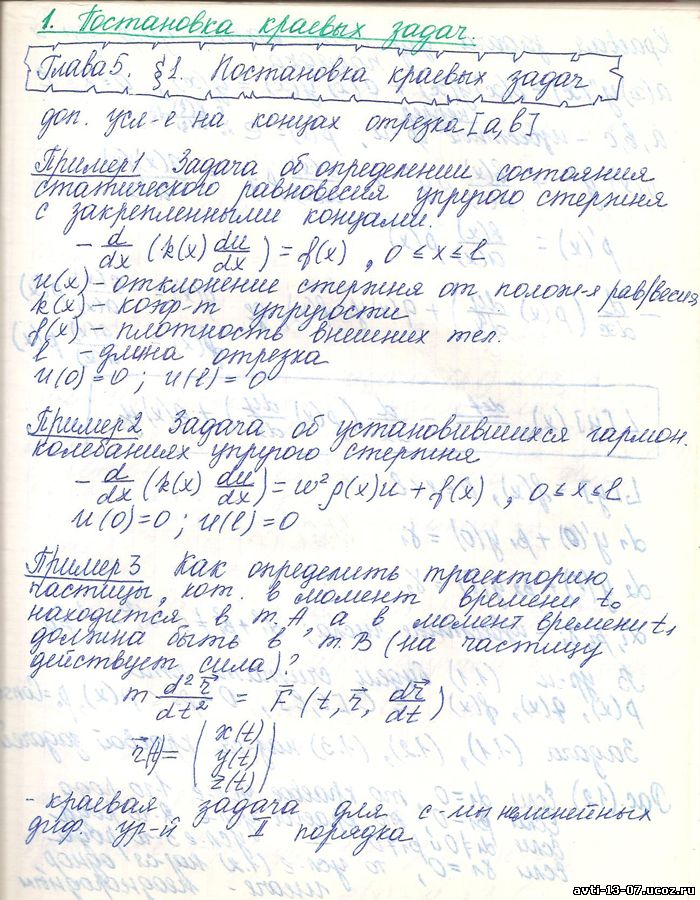 1. Постановка краевых задач.
Глава 5. §1. Постановка краевых задач
доп. усл-е на концах отрезка [a, b]
Пример 1 Задача об определении состояния
статического равновесия упругого стержня
с закрепленными концами.
- d/dx (k(x) du/dx) = f(x), 0 ≤ x ≤ l
u(x) - отклонение стержня от полож-я рав/весия
k(x) - коэф-т упругости
f(x) - плотность внешних тел.
l - длина отрезка
u(0) = 0; u(l) = 0
Пример 2 Задача об установившихся гармон.
колебаниях упругого стержня
- d/dx (k(x) du/dx) = w² ρ(x)u + f(x), 0 ≤ x ≤ l
u(0) = 0; u(l) = 0
Пример 3 Как определить траекторию
частицы, кот. в момент времени t₀
находится в т. A, а в момент времени t₁
должна быть в т. B (на частицу
действует сила)?
m d²r⃗/dt² = F⃗ (t, r⃗, dr⃗/dt)
r⃗(t) = ( x(t)
y(t)
z(t) )
- краевая задача для с-мы нелинейных
диф. ур-й II порядка
avti-13-07.ucoz.ru